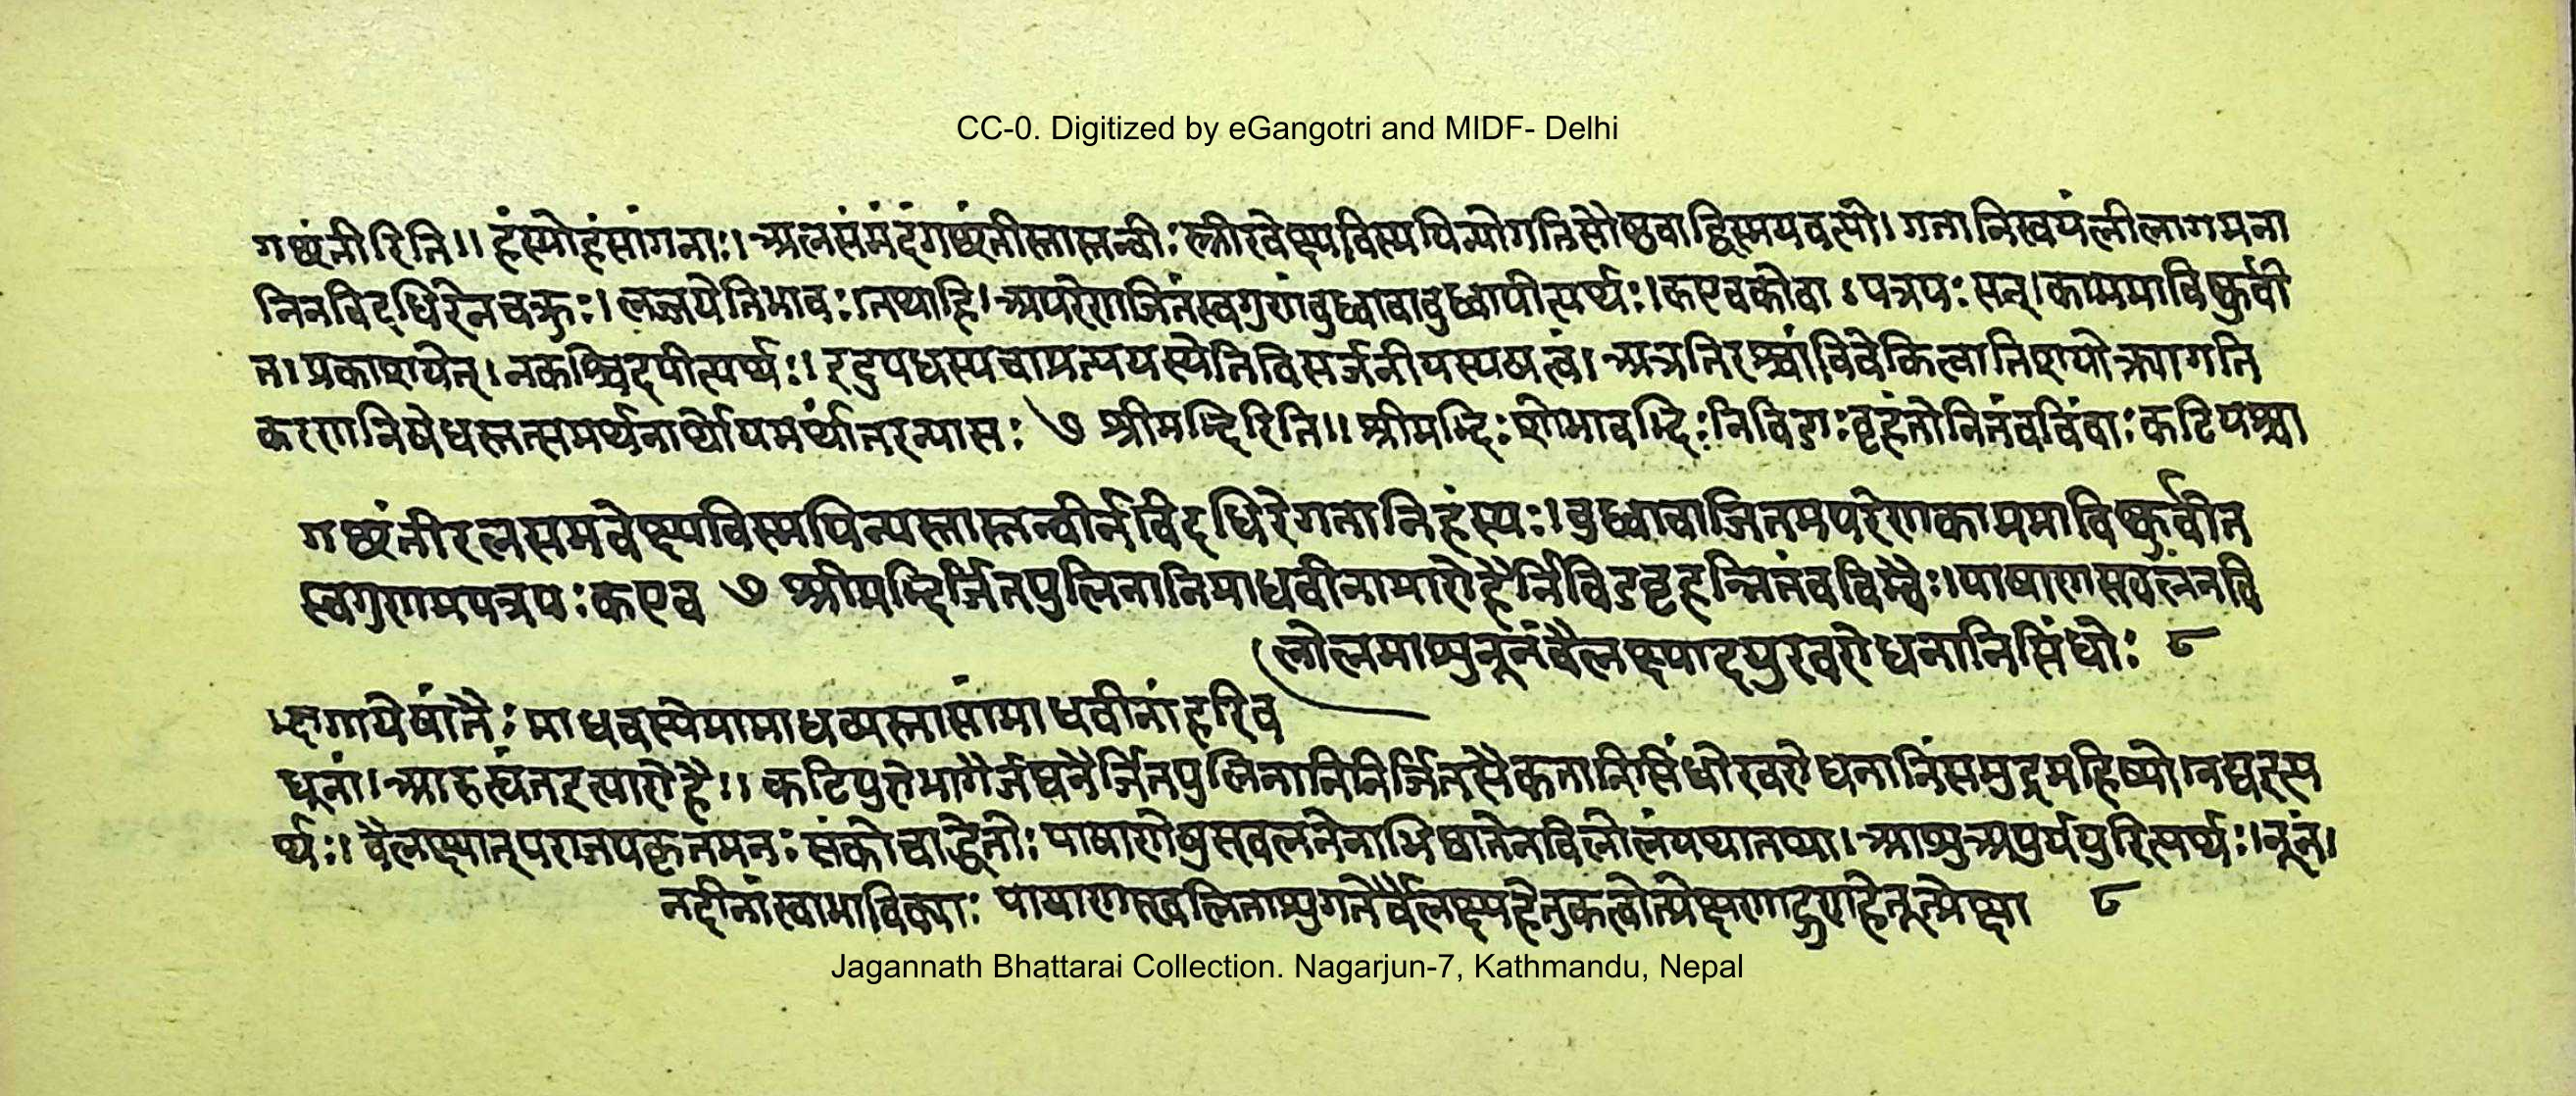 CC-0. Digitized by eGangotri and MIDF- Delhi
गछंतीरिति॥ हंस्योहंसांगनाः। अलसंमंदंगछंतीस्तास्तन्वीःस्त्रीरवेक्ष्यविस्मयिन्योगतिसौष्ठवाद्विस्मयवत्यो। गतानिस्वयंलीलागमना
निनविदधिरेनचक्रुः। लज्जयेतिभावः।तथाहि। अपरेणजितंस्वगुणंवुध्वावावुध्वापीत्यर्थः।कएवकोवा ऽपत्रपः सन्।काममाविष्कुर्वी
त। प्रकाशयेत्। नकश्चिदपीत्यर्थः। इदुपधस्यचाप्रत्ययस्येतिविसर्जनीयस्यषत्वं। अत्रतिरश्चांविवेकित्वातिशयोक्त्यागति
करणनिषेधस्तत्समर्थनार्थोयमर्थांतरन्यासः ७ श्रीमद्भिरिति॥ श्रीमद्भिः शोभावद्भिःनिविडाःवृहंतोनितंवविंवाःकटिपश्चा
गछंतीरलसमवेक्ष्यविस्मयिन्यस्तास्तन्वीर्नविदधिरेगतानिहंस्यः।वुध्वावाजितमपरेणकाममाविष्कुर्वीत
स्वगुणमपत्रपःकएव ७ श्रीमद्भिर्जितपुलिनानिमाधवीनामारोहैर्निविडवृहन्नितंवविम्वैः।पाषाणस्खलनवि
लोलमाशुनूनंवैलक्ष्याद्ययुरवरोधनानिसिंधोः ८
द्भागायेषांतैः माधवस्येमामाधव्यस्तासांमाधवीनांहरिव
धूनां। आरुह्यंतइत्यारोहै।। कटिपुरोभागैर्जघनैर्जितपुलिनानिनिर्जितसैकतानिसिंधोरवरोधनानिसमुद्रमहिष्यो।नद्यइत्य
र्थः। वैलक्ष्यात्पराजयकृतमनः संकोचाद्धेतोः पाषाणेषुस्खलनेनाभिघातेनविलोलंयथातथा। आशुअपुर्ययुरित्यर्थः।नूनं।
नदीनांस्वाभाविक्याः पाषाणस्खलिताशुगतेर्वैलक्ष्यहेतुकत्वोत्प्रेक्षणाद्गुणहेतूत्प्रेक्षा ८
Jagannath Bhattarai Collection. Nagarjun-7, Kathmandu, Nepal